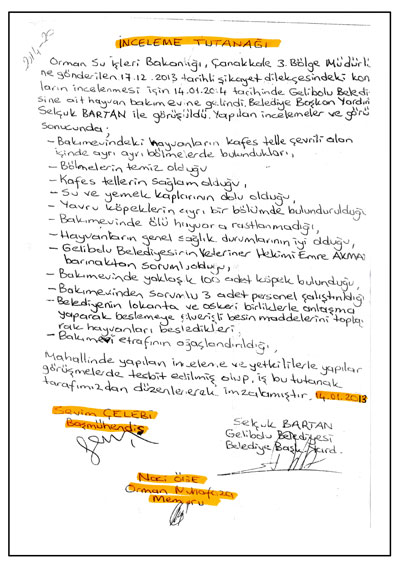 İNCELEME TUTANAĞI
Orman Su İşleri Bakanlığı, Çanakkale 3. Bölge Müdürlü
ne gönderilen 17.12.2013 tarihli şikayet dilekçesindeki kon
ların incelenmesi için 14.01.2014 tarihinde Gelibolu Beledi
sine ait hayvan bakımevine gelindi. Belediye Başkan Yardım
Selçuk BARTAN ile görüşüldü. Yapılan incelemeler ve görü
sonucunda;
- Bakımevindeki hayvanların kafes telle çevrili olan
içinde ayrı ayrı bölmelerde bulundukları,
- Bölmelerin temiz olduğu
- Kafes tellerin sağlam olduğu,
- Su ve yemek kaplarının dolu olduğu,
- Yavru köpeklerin ayrı bir bölümde bulundurulduğu
- Bakımevinde ölü hayvana rastlanmadığı,
- Hayvanların genel sağlık durumlarının iyi olduğu,
- Gelibolu Belediyesinin Veteriner Hekimi Emre AKMA
barınaktan sorumlu olduğu,
- Bakımevinde yaklaşık 100 adet köpek bulunduğu,
- Bakımevinden sorumlu 3 adet personel çalıştırıldığı
- Belediyenin lokanta ve askeri birliklerle anlaşma
yaparak beslemeye elverişli besin maddelerini topla
rak hayvanları besledikleri,
- Bakımevi etrafının ağaçlandırıldığı,
Mahallinde yapılan inceleme ve yetkililerle yapılan
görüşmelerde tesbit edilmiş olup, iş bu tutanak
tarafımızdan düzenlenerek imzalamıştır. 14.01.2013
Sevim ÇELEBİ
Başmühendis
Selçuk BARTAN
Gelibolu Belediyesi
Belediye Başk. Yard.
Naci
Orman Muhafaza
Memuru